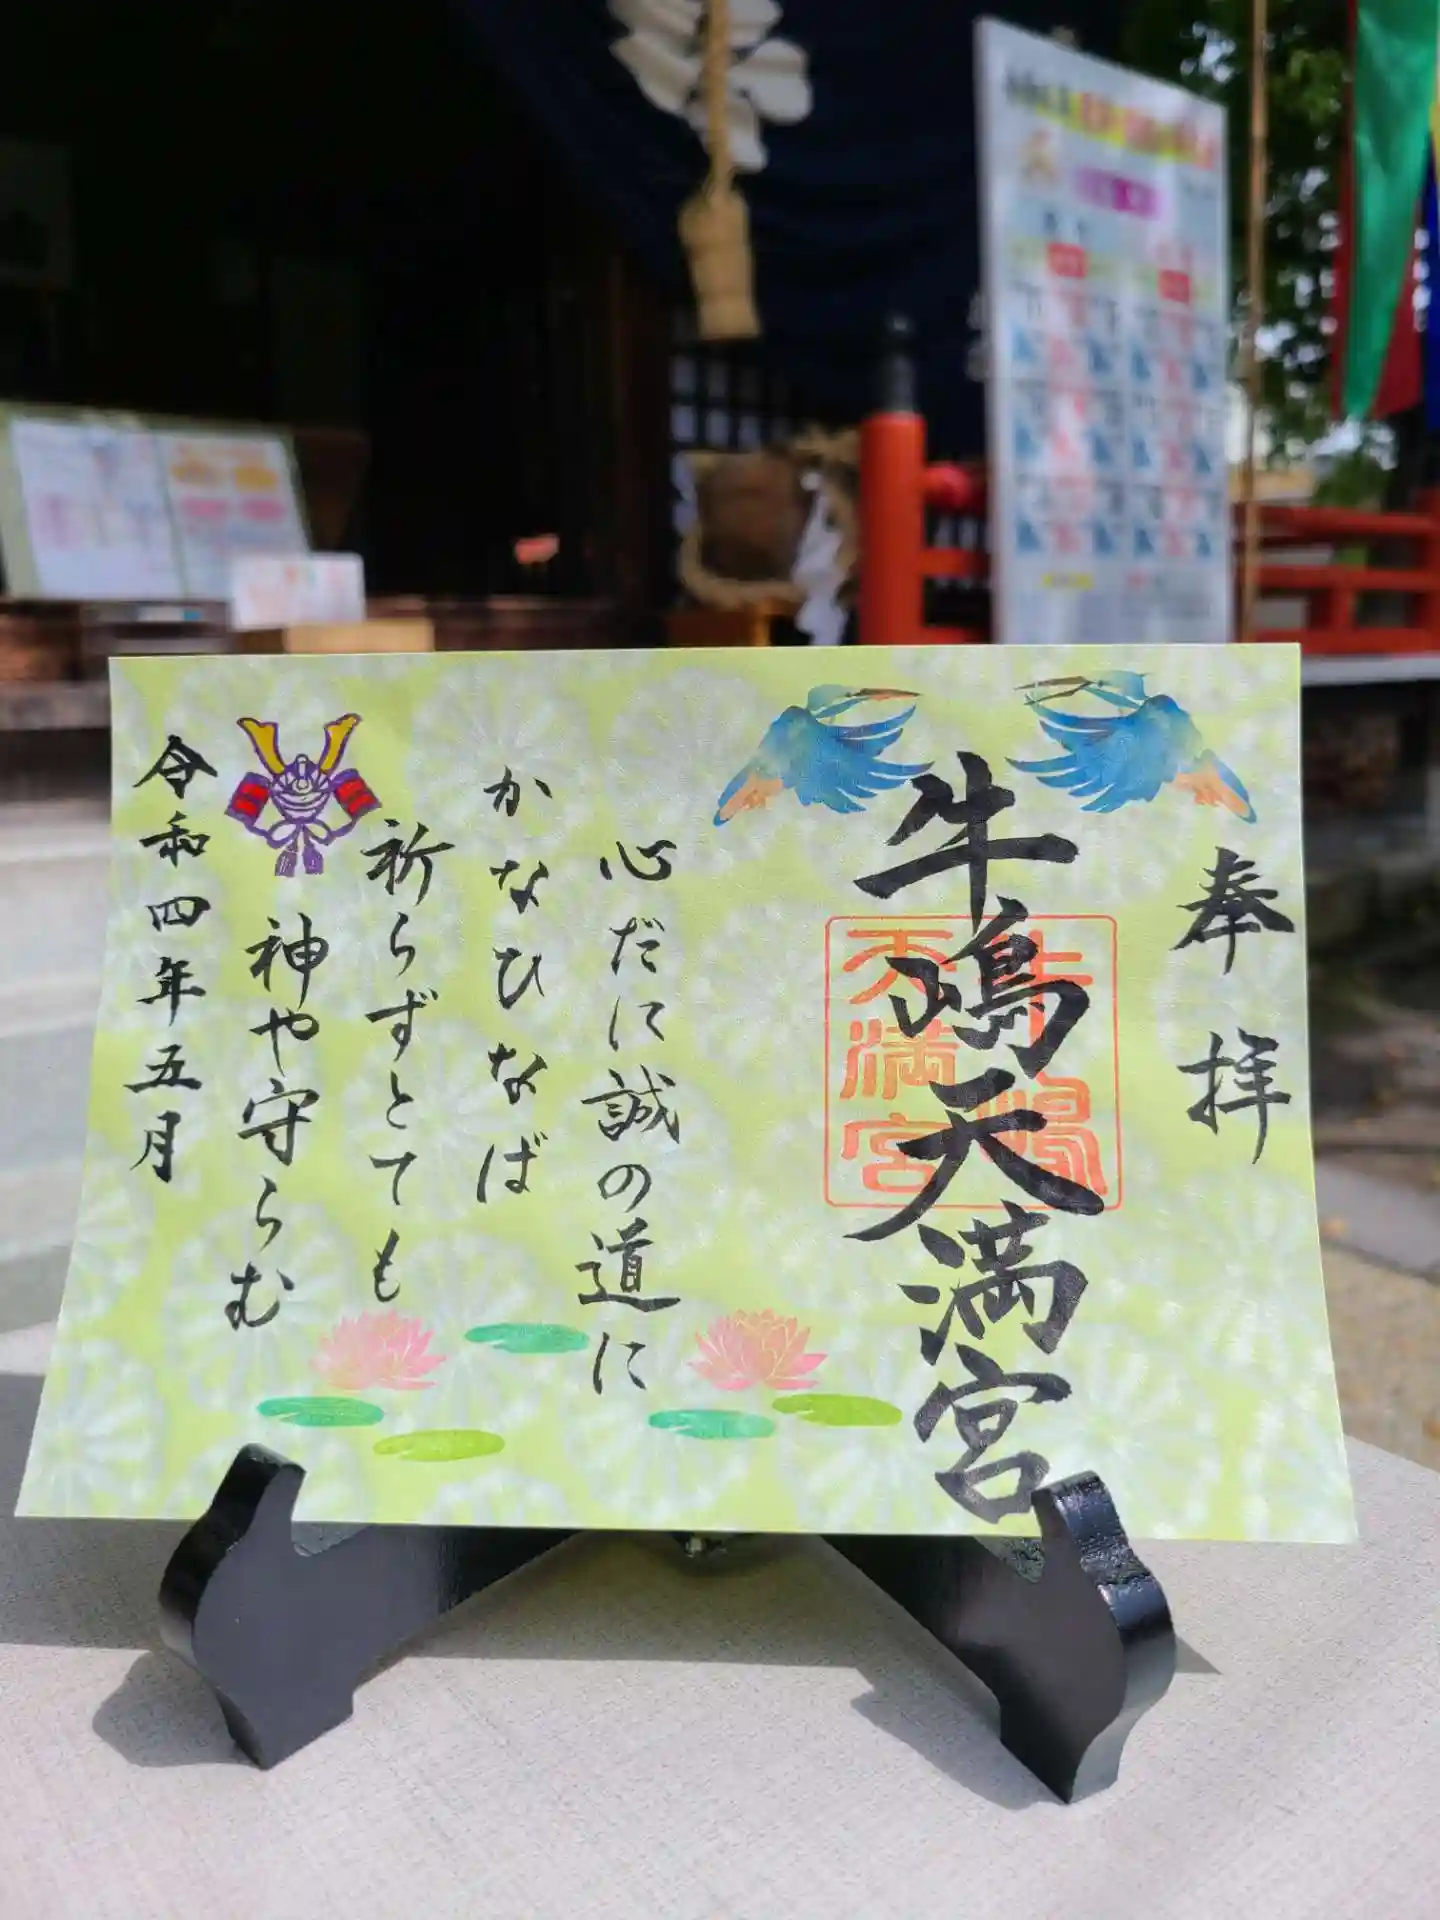 奉拝
牛嶋天満宮
牛嶋
天満宮
心だに誠の道に
かなひなば
祈らずとても
神や守らむ
令和四年五月